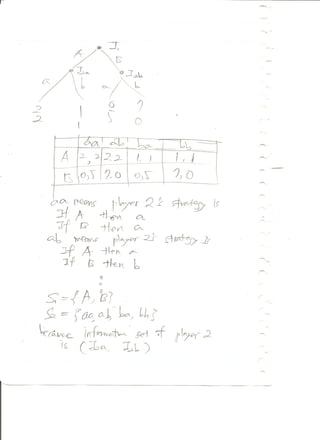 I₁
A B
I₂a I₂b
a b a b
2 1 0 7
2 1 5 0
aa ab ba bb
A 2,2 2,2 1,1 1,1
B 0,5 7,0 0,5 7,0
aa means player 2's strategy is
If A then a
If B then a
ab means player 2's strategy is
If A then a
If B then b
⋮
S₁ = {A, B}
S₂ = {aa, ab, ba, bb}
because information set of player 2
is (I₂a, I₂b)